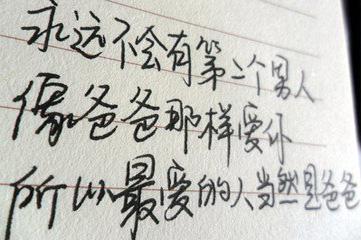 永远不会有第二个男人
像爸爸那样爱你
所以最爱的人当然是爸爸